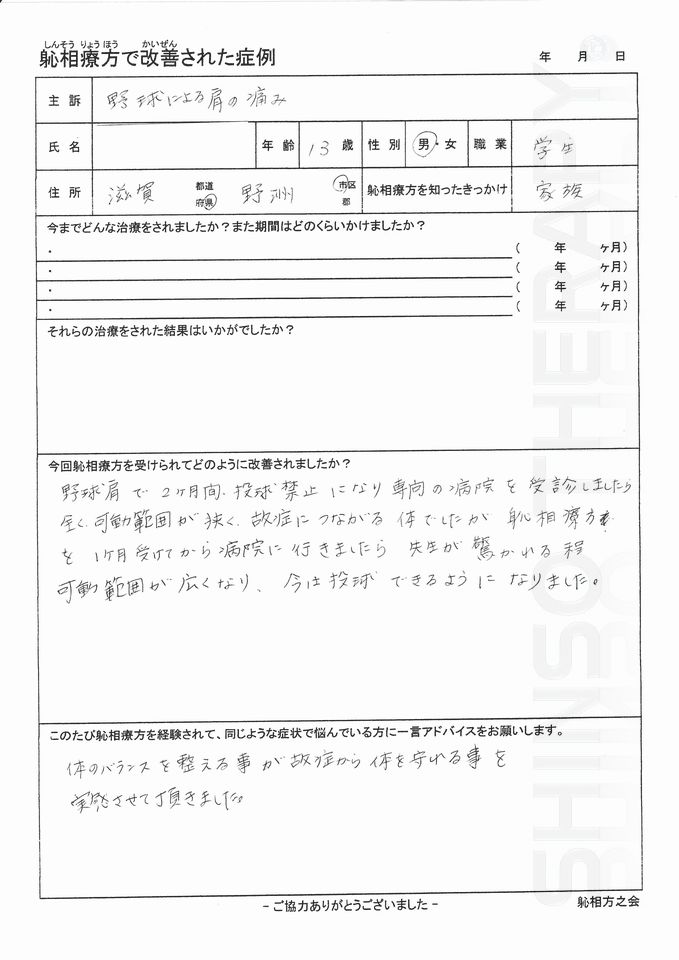 しんそう りょうほう かいぜん
躰相療方で改善された症例 年 月 日
主訴 野球による肩の痛み
氏名 年齢 13 歳 性別 男・女 職業 学生
住所 滋賀 都道府県 野洲 市区郡 躰相療方を知ったきっかけ 家族
今までどんな治療をされましたか？また期間はどのくらいかけましたか？
・ ( 年 ヶ月)
・ ( 年 ヶ月)
・ ( 年 ヶ月)
・ ( 年 ヶ月)
それらの治療をされた結果はいかがでしたか？
今回躰相療方を受けられてどのように改善されましたか？
野球肩で2ヶ月間、投球禁止になり専向の病院を受診しましたら
全く可動範囲が狭く、故症につながる体でしたが躰相療方
を1ヶ月受けてから病院に行きましたら 先生が驚かれる程
可動範囲が広くなり、今は投球できるようになりました。
このたび躰相療方を経験されて、同じような症状で悩んでいる方に一言アドバイスをお願いします。
体のバランスを整える事が故症から体を守れる事を
実感させて頂きました。
- ご協力ありがとうございました -
躰相方之会
SHINSO THERAPY